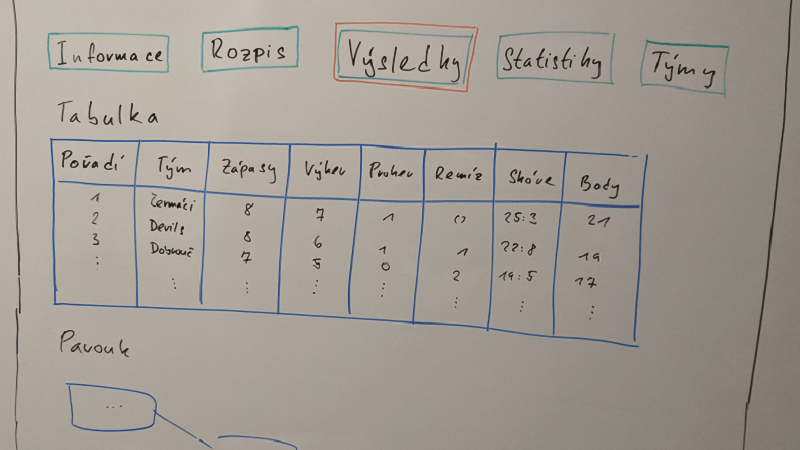 Informace Rozpis Výsledky Statistiky Týmy
Tabulka
Pořadí Tým Zápasy Výher Proher Remíz Skóre Body
1 Čermáci 8 7 1 0 25:3 21
2 Devils 8 6 1 1 22:8 19
3 7 5 0 2 19:5 17
⋮ ⋮ ⋮ ⋮ ⋮ ⋮ ⋮ ⋮
Pavouk
...